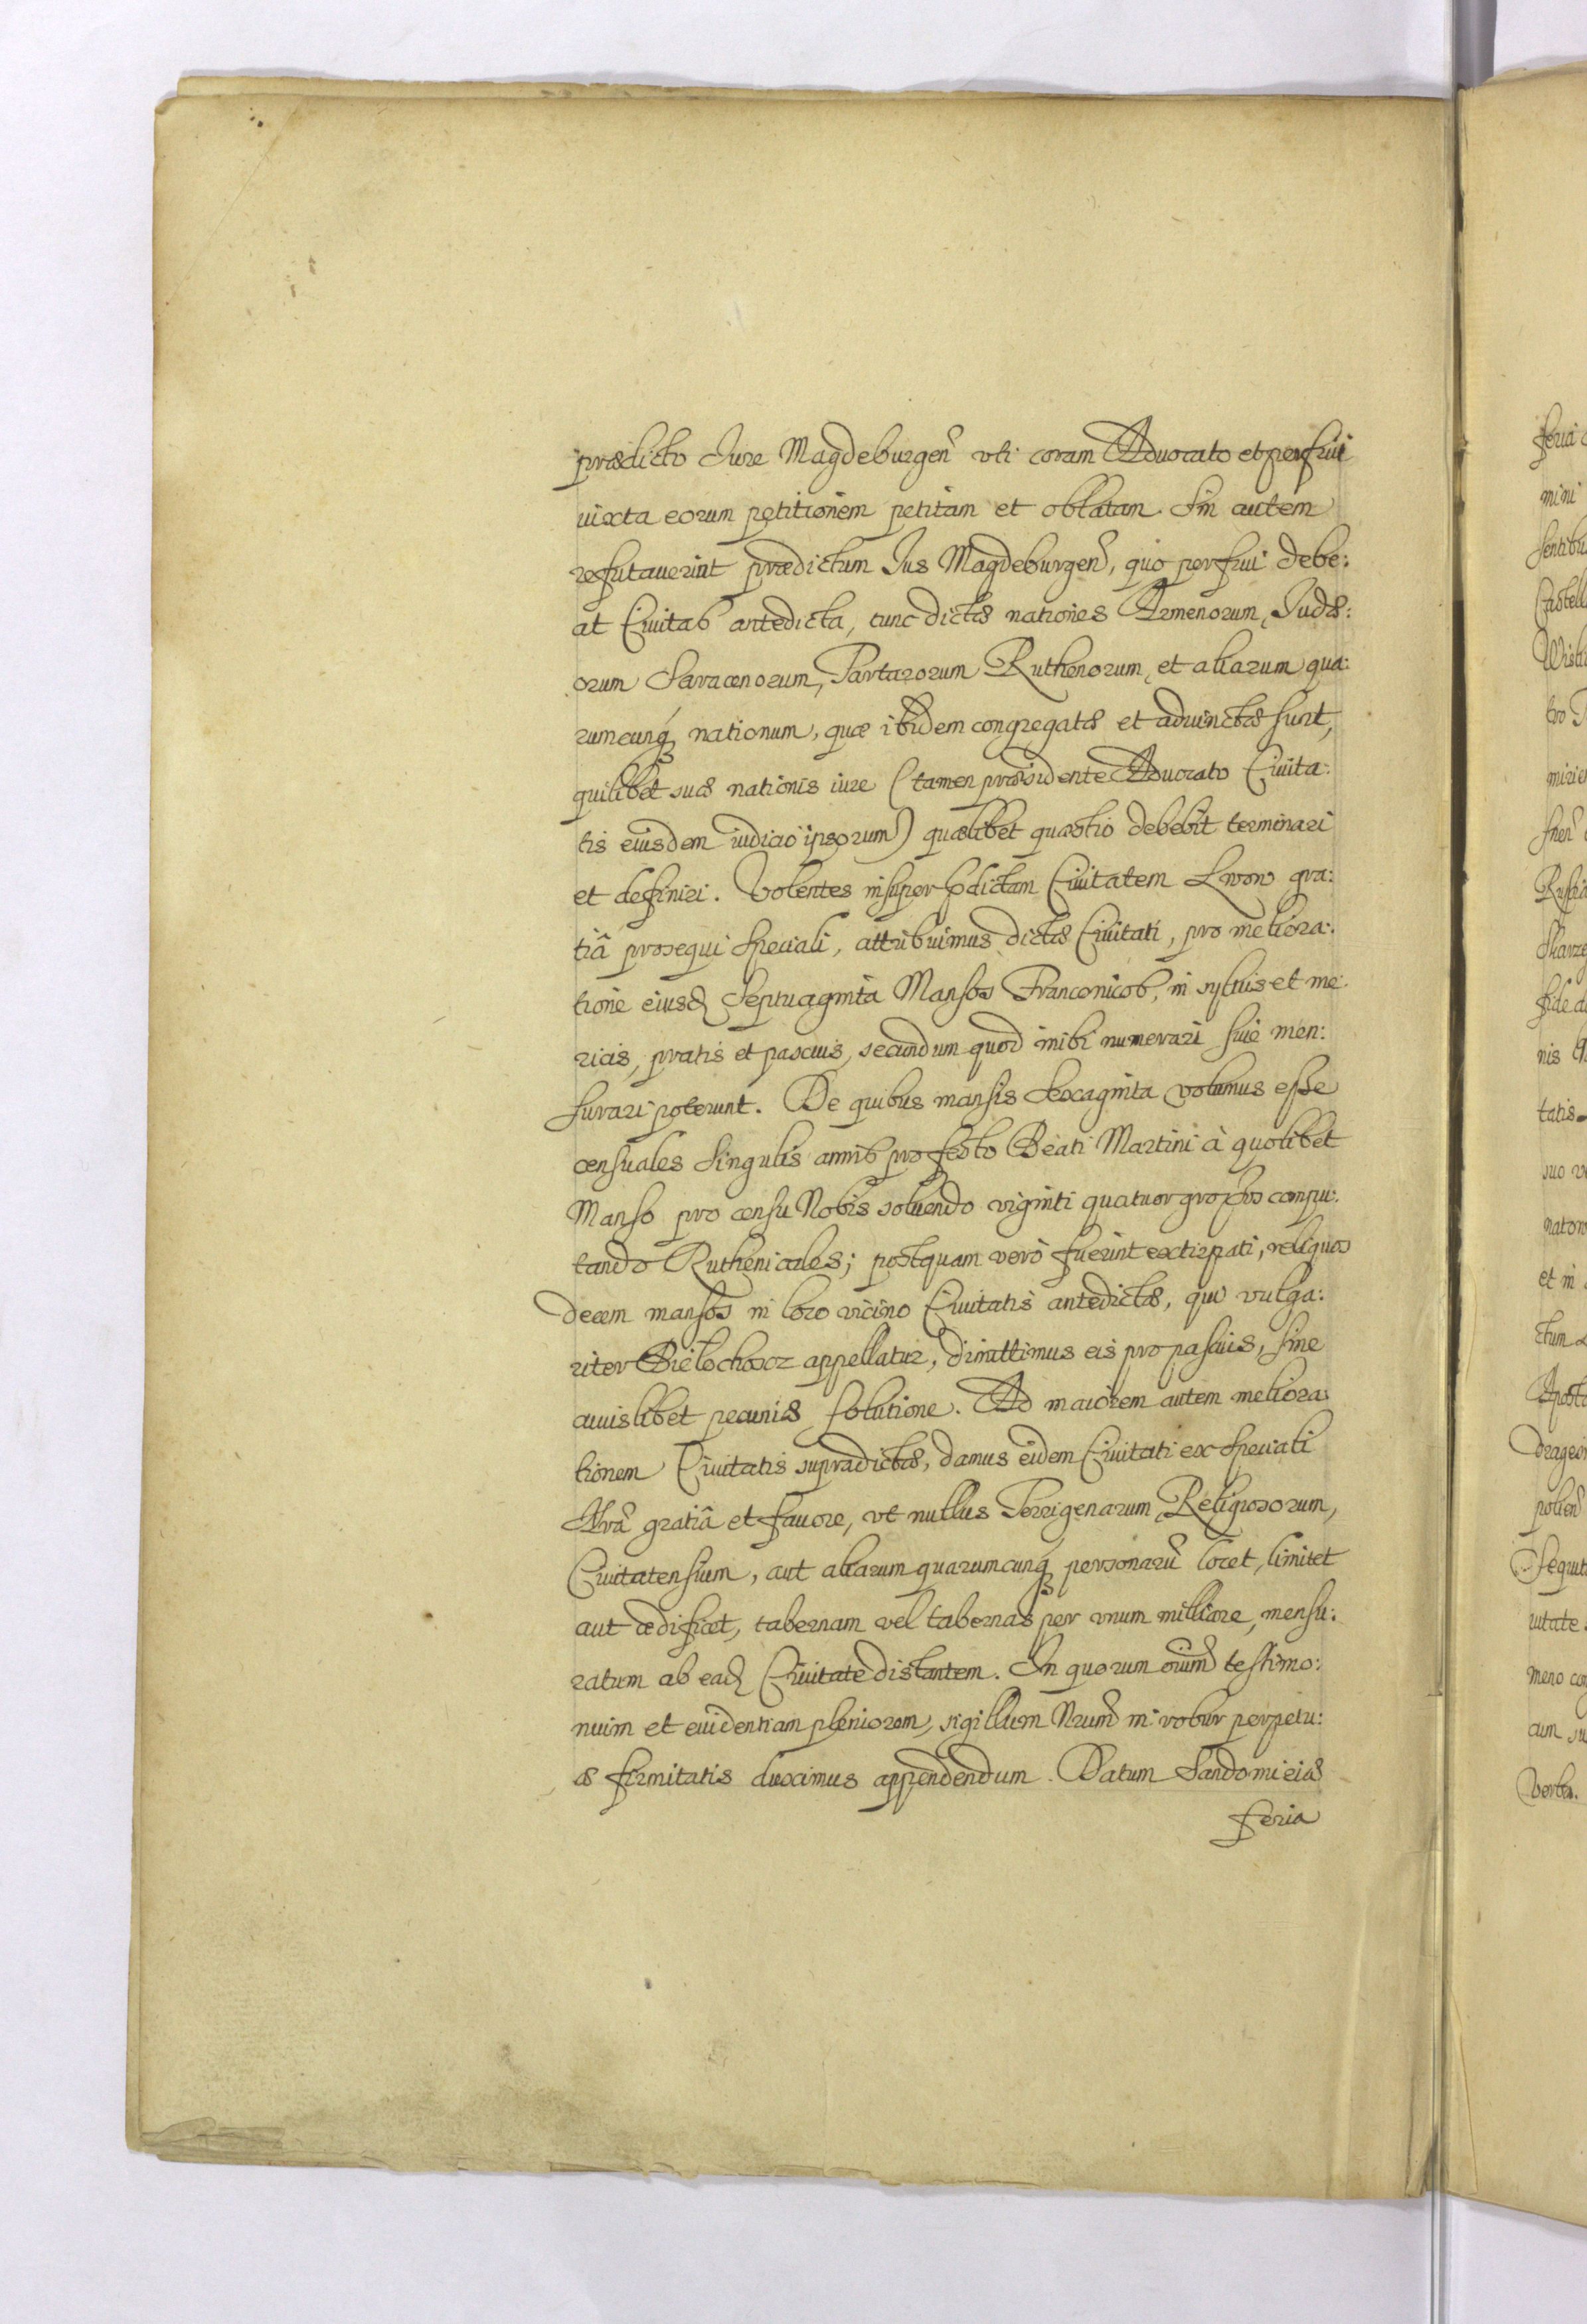 prædicto Iure Magdeburgeñ vti coram Aduocato et perfrui
iuxta eorum petitionem petitam et oblatam. Sin autem
refutauerint prædictum Ius Magdeburgeñ, quo perfrui debe:
at Ciuitas antedicta, tunc dictæ nationes Armenorum, Iudæ:
orum Saracenorum, Tartarorum Ruthenorum, et aliarum qua:
rumcunq́ȝ nationum, quæ ibidem congregatæ et adiunctæ sunt,
quilibet suæ nationis iure (tamen præsidente Aduocato Ciuita:
tis eiusdem iudicio ipsorum) quælibet quæstio debebit terminari
et definiri. Volentes insuper dictam Ciuitatem Lwow gra:
tiâ prosequi speciali, attribuimus dictæ Ciuitati, pro meliora:
tione eiusd Septuaginta Mansos Franconicos, in syluis et me:
ricis, pratis et pascuis, secundum quod inibi numerari siue men:
surari poterunt. De quibus mansis Sexaginta volumus esse
censuales singulis annis pro festo Beati Martini à quolibet
Manso pro censu Nobis soluendo viginti quatuor grossos compu:
tando Ruthenicales; postquam verò fuerint extirpati, reliquos
decem mansos in loco vicino Ciuitatis antedictæ, qui vulga:
riter Bielochoscz appellatur, dimittimus eis pro pascuis, sine
cuuislibet pecuniæ solutione. Ad maiorem autem meliora:
tionem Ciuitatis supradictæ, damus eidem Ciuitati ex speciali
Nrã gratiâ et fauore, vt nullus Terrigenarum, Religiosorum,
Ciuitatensium, aut aliarum quarumcunq́ȝ personarũ locet, limitet
aut ædificet, tabernam vel tabernas per vnum milliare, mensu:
ratum ab ead Ciuitate distantem. In quorum oium testimo:
nium et euidentiam pleniorem, sigillum Nrum in robur perpetu:
æ firmitatis duximus appendendum. Datum Sandomiriæ
feria